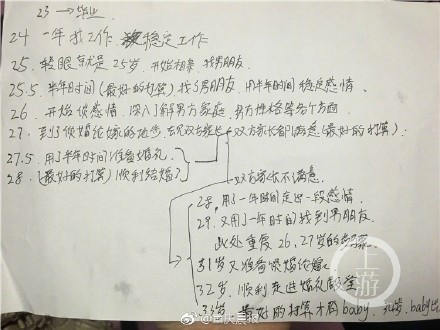 23 → 毕业
24 一年找工作 稳定工作
25. 转眼就是25岁, 开始相亲, 找男朋友.
25.5 半年时间 (最好的打算) 找了男朋友, 用半年时间稳定感情.
26. 开始谈感情, 深入了解男方家庭, 男方性格等各个方面
27. 到了谈婚论嫁的地步, 双方家长都满意 (最好的打算).
27.5. 用了半年时间准备婚礼.
28. (最好的打算) 顺利结婚
双方家长不满意.
28. 用了一年时间走出一段感情.
29. 又用了一年时间找到男朋友.
此处重复26, 27岁的步骤.
31岁又准备谈婚论嫁.
32岁, 顺利走进婚礼殿堂
33岁 最好的打算才有baby.
上游
@重庆晨报